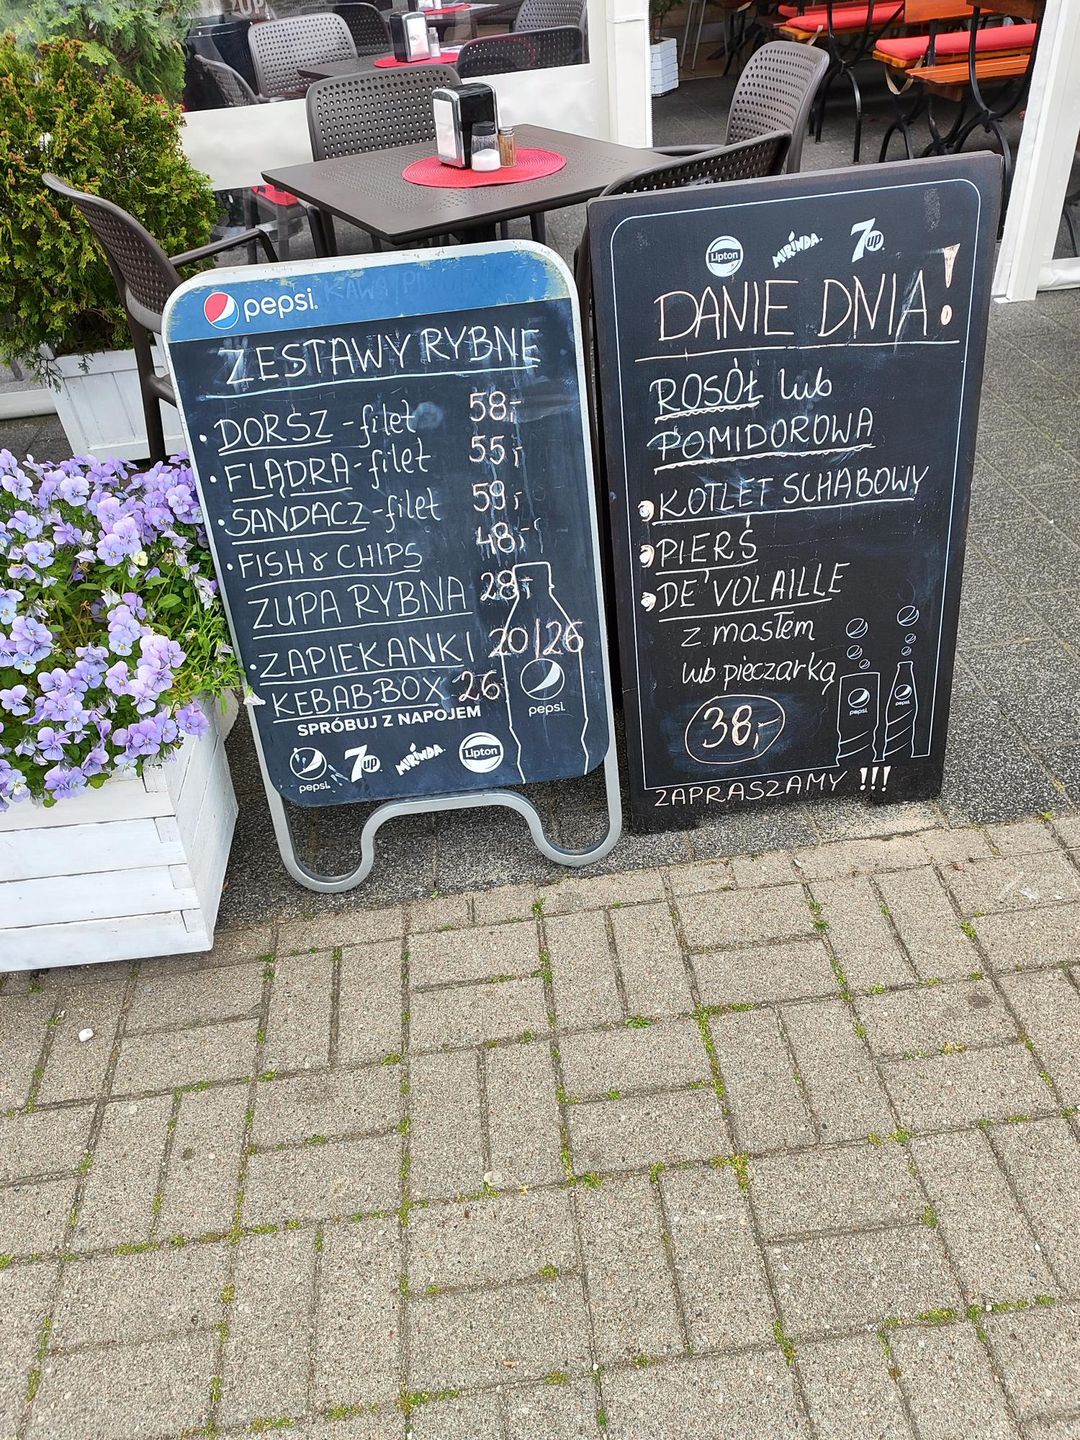 pepsi.
ZESTAWY RYBNE
• DORSZ - filet 58,-
• FLĄDRA - filet 55,-
• SANDACZ - filet 59,-
• FISH & CHIPS 48,-
ZUPA RYBNA 28,-
• ZAPIEKANKI 20/26
KEBAB-BOX 26
SPRÓBUJ Z NAPOJEM
pepsi.
pepsi. 7up MIRINDA. Lipton
Lipton MIRINDA. 7up
DANIE DNIA!
ROSÓŁ lub
POMIDOROWA
KOTLET SCHABOWY
PIERŚ
DE VOLAILLE
z masłem
lub pieczarką
38,-
pepsi. pepsi.
ZAPRASZAMY !!!